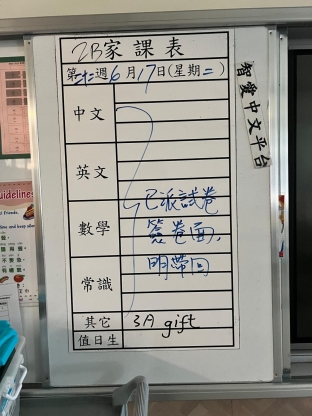 2B家課表
第廿二週6月17日(星期二)
智愛中文平台
中文
英文
已派試卷
數學
簽卷面,
明帶回
常識
其它 3A gift
值日生
uidelines